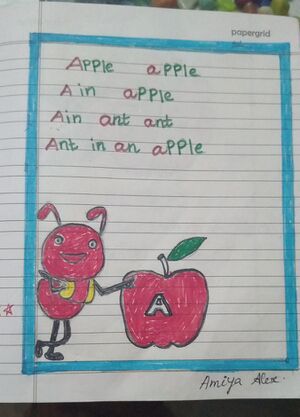 papergrid
Apple apple
A in apple
A in ant ant
Ant in an apple
A
Amiya Alex.